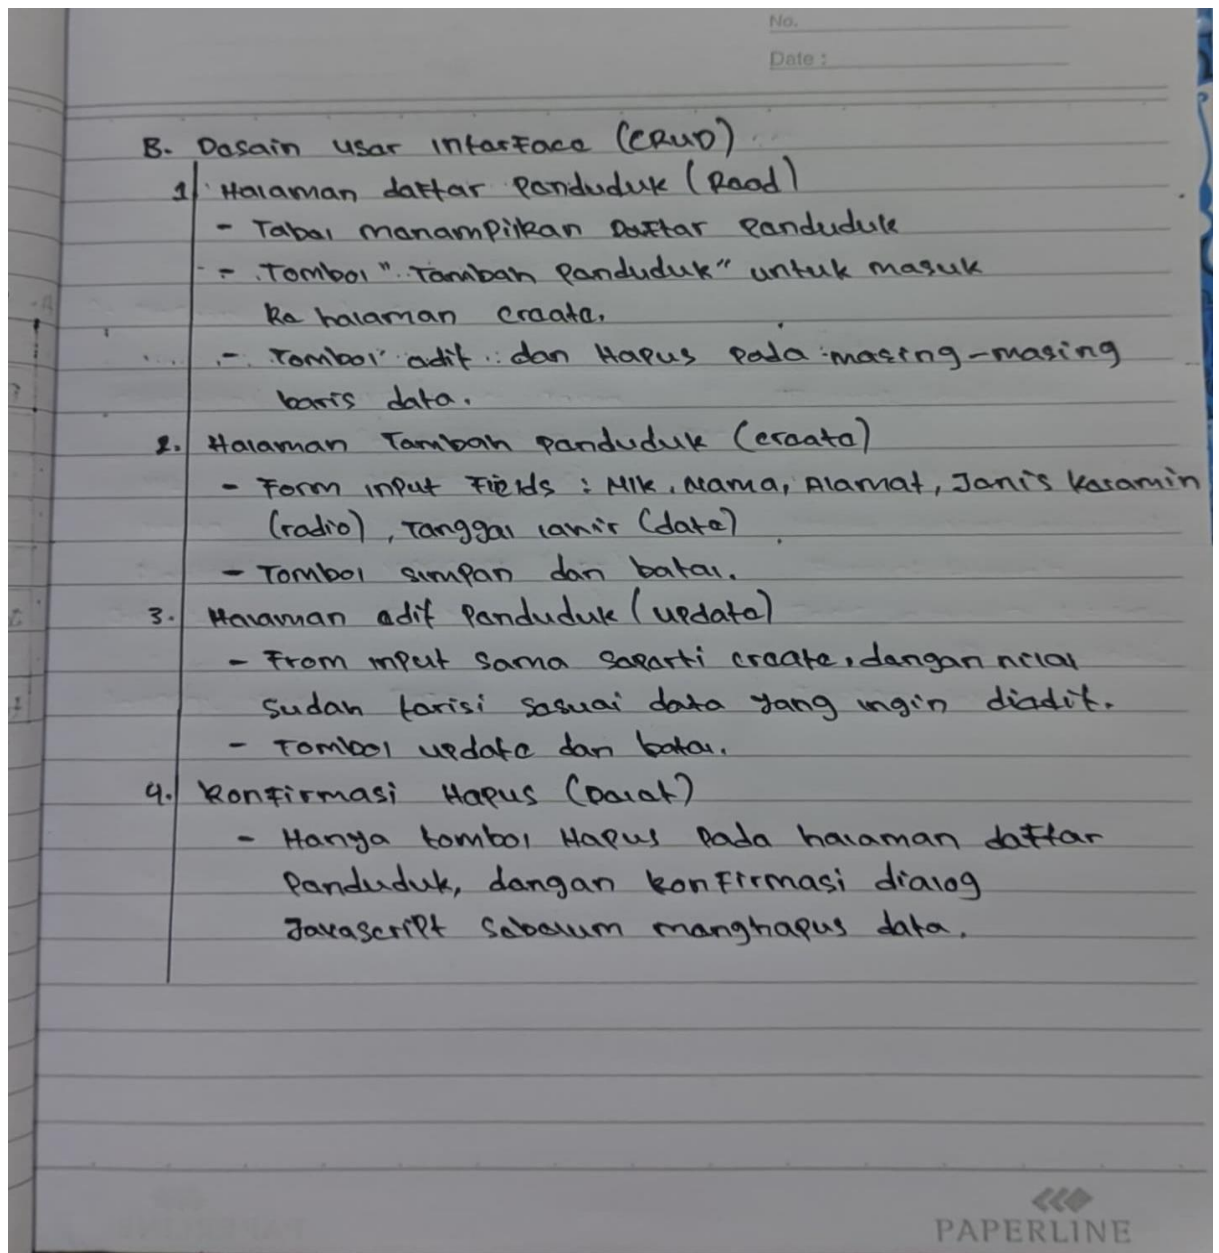 No.
Date :
B. Desain user interface (CRUD)
1. Halaman daftar Penduduk (Read)
- Tabel menampilkan Daftar Penduduk
- Tombol "Tambah Penduduk" untuk masuk
ke halaman create.
- Tombol edit dan Hapus pada masing-masing
baris data.
2. Halaman Tambah penduduk (create)
- Form input Fields : NIK, Nama, Alamat, Jenis Kelamin
(radio), Tanggal lahir (date)
- Tombol simpan dan batal.
3. Halaman edit Penduduk (update)
- From input sama seperti create, dengan nilai
sudah terisi sesuai data yang ingin diedit.
- Tombol update dan batal.
4. Konfirmasi Hapus (Delet)
- Hanya tombol Hapus pada halaman daftar
Penduduk, dengan konfirmasi dialog
Javascript sebelum menghapus data.
PAPERLINE